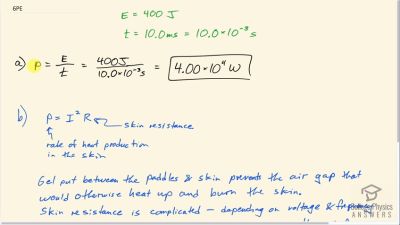 6PE
E = 400 J
t = 10.0 ms = 10.0 × 10⁻³ s
a) P = E/t = 400 J / 10.0 × 10⁻³ s = 4.00 × 10⁴ W
b) P = I²R ← skin resistance
rate of heat production
in the skin
Gel put between the paddles & skin prevents the air gap that
would otherwise heat up and burn the skin.
Skin resistance is complicated — depending on voltage & frequency
Physics
ANSWERS